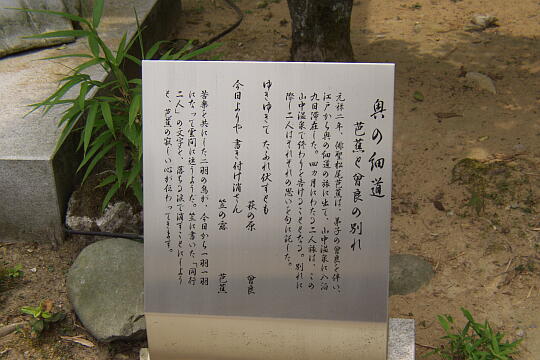 奥の細道
芭蕉と曽良の別れ
元禄二年、俳聖松尾芭蕉は、弟子の曽良を伴い、
江戸から奥の細道の旅に出て、山中温泉に入浴
九日滞在した。四カ月にわたる二人旅は、この
山中温泉で終わりを告げることとなり、別れに
際し二人はそれぞれの思いを句に託した。
ゆきゆきて たふれ伏すとも
萩の原 曽良
今日よりや 書き付け消さん
笠の露 芭蕉
苦楽を共にした二羽の鳥が、今日から一羽一羽
になって雲間に迷うようだ。笠に書いた「同行
二人」の文字を、落ちる涙で消すことにしよう
と、芭蕉の寂しい心が伝わってきます。